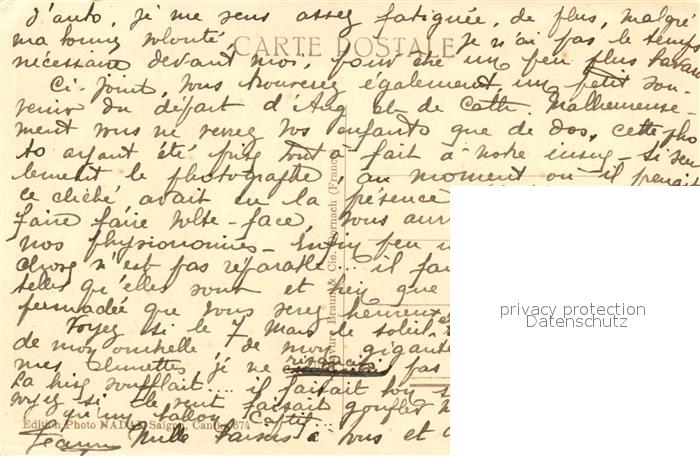 d'auto, je me sens assez fatiguée, de plus, malgré
ma bonne volonté, je n'ai pas le temps
CARTE POSTALE
nécessaire devant moi, pour être un peu plus
Ci-joint, vous trouverez également un petit sou-
venir du départ d'Ang et de Cath. Malheureuse-
ment vous ne verrez vos enfants que de dos, cette pho
to ayant été prise tout à fait à notre insu - si seu
lement le photographe, au moment où il prenait
ce cliché, avait eu la présence
faire faire volte-face, vous aur
nos physionomies - Enfin peu
chose n'est pas réparable... il fau
telles qu'elles sont et que
persuadée que vous serez heureux
Voyez si le 7 Mars le soleil
de mon ombrelle, de mon gigante
mes lunettes, je ne risquais pas
La bise soufflait... il faisait bon
voyez si le vent faisait gonfler
qu'un ballon captif...
Edition Photo NADAL Saïgon, Canh. 674
Jeanne Mille baisers à vous et
Braun & Cie, Dornach (France)
privacy protection
Datenschutz